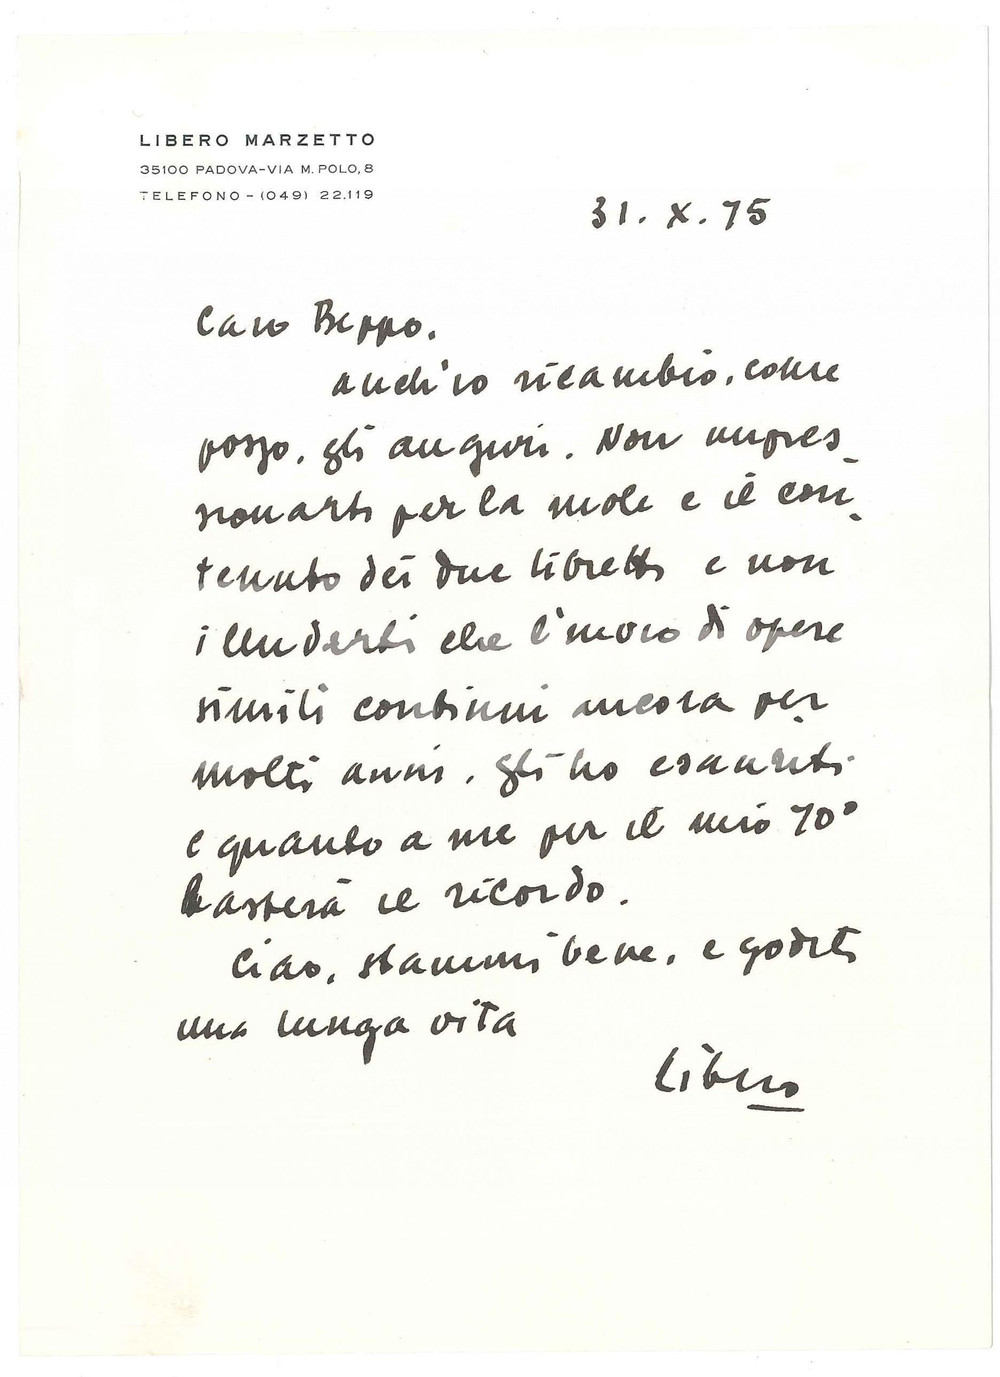 LIBERO MARZETTO
35100 PADOVA-VIA M. POLO, 8
TELEFONO - (049) 22.119
31. X. 75
Caro Beppo,
anch'io ricambio, come
posso, gli auguri. Non impres-
sionarti per la mole e il con-
tenuto dei due libretti e non
illuderti che l'invio di opere
simili continui ancora per
molti anni. Gli ho esauriti
e quanto a me per il mio 70°
basterà il ricordo.
Ciao, stammi bene, e goditi
una lunga vita
Libero